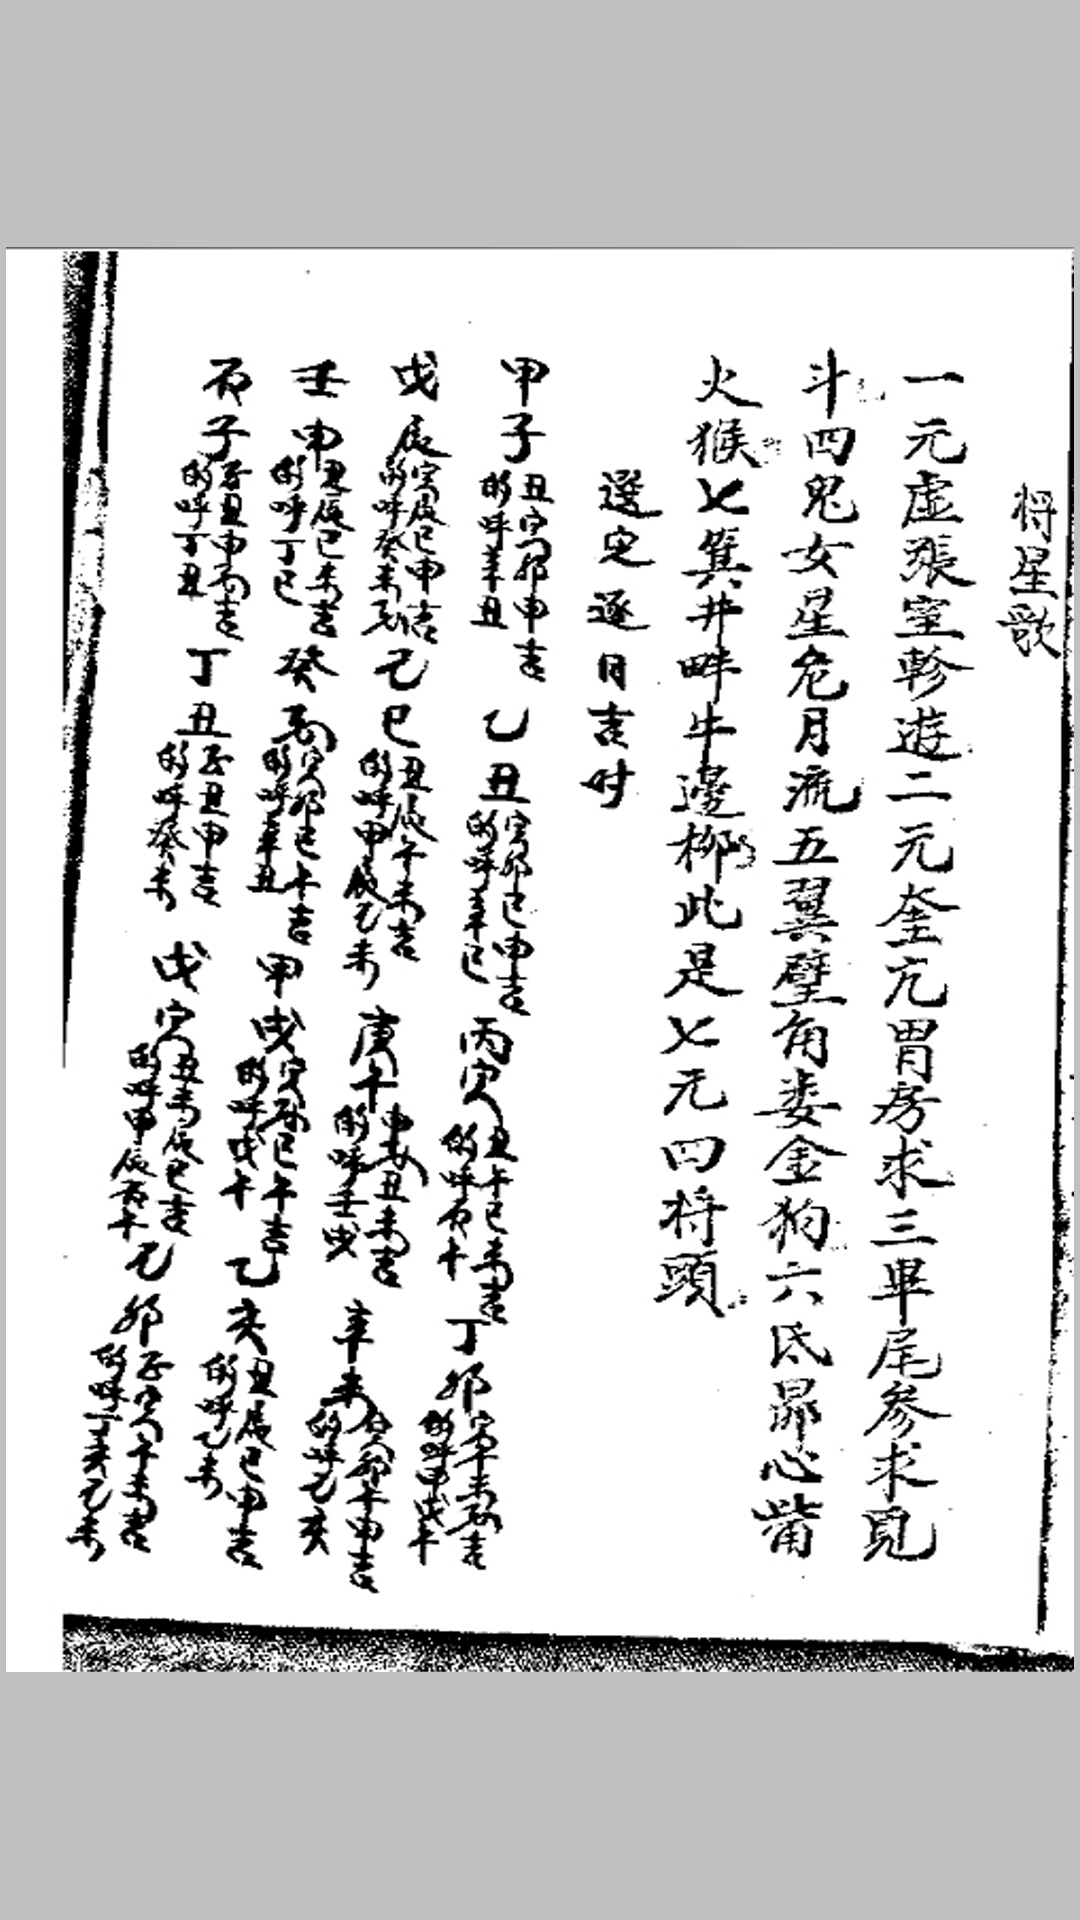 将星歌
一元虚張室軫遊二元奎亢胃房求三畢尾参求覓
斗四鬼女星危月流五翼壁角娄金狗六氐昴心觜
火猴七箕井畔牛邊柳此是七元四将頭
選定逐日吉时
甲子 丑寅卯申吉 的呼辛丑 乙丑 寅卯巳申吉 的呼辛巳 丙寅 丑午巳未吉 的呼丙午 丁卯 寅午未酉吉 的呼甲戌午
戊辰 寅辰巳申吉 的呼癸未酉 己巳 丑辰午未吉 的呼甲辰乙未 庚午 丑未吉 的呼壬戌 辛未 寅卯午申吉 的呼乙亥
壬申 丑辰巳未吉 的呼丁巳 癸酉 寅卯巳午吉 的呼辛丑 甲戌 寅卯巳午吉 的呼戊午 乙亥 丑辰巳申吉 的呼乙未
丙子 子丑申酉吉 的呼丁丑 丁丑 子丑申吉 的呼癸未 戊寅 丑未辰巳吉 的呼甲辰丙午 己卯 子寅午未吉 的呼丁亥乙未